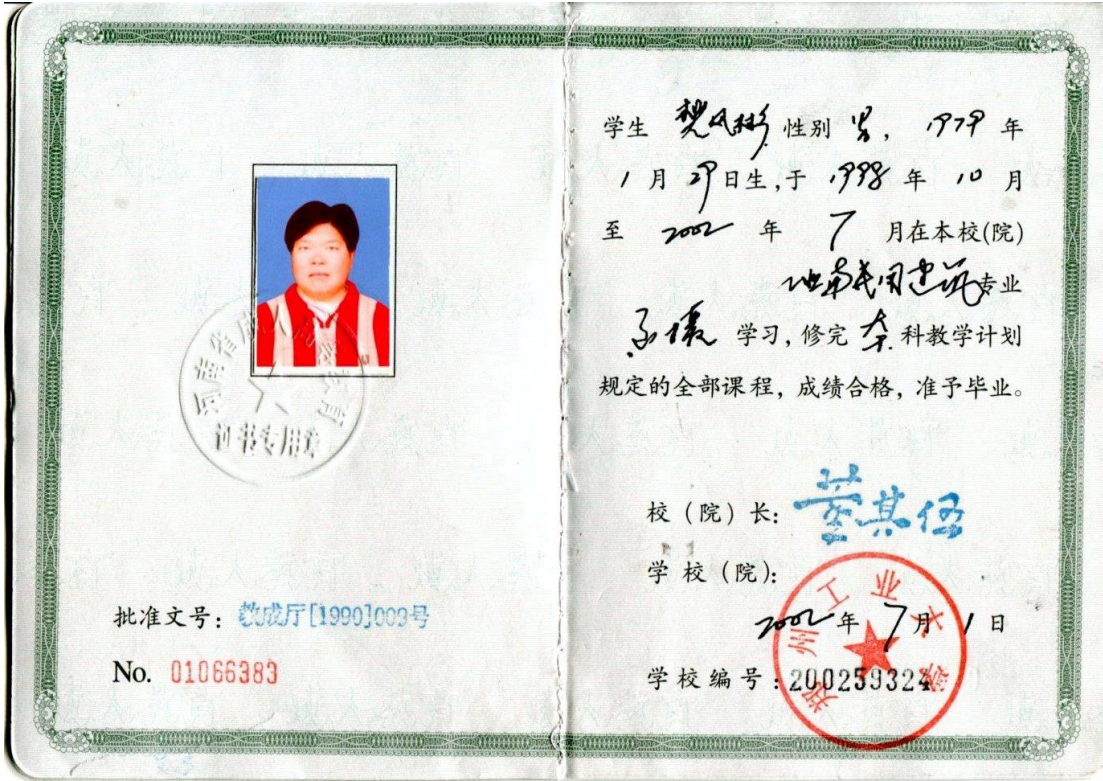 河南省成人高等教育
证书专用章
批准文号：教成厅[1990]003号
No. 01066383
学生 樊凤彬 性别 男，1979 年
1 月 29 日生，于 1998 年 10 月
至 2002 年 7 月在本校(院)
专业
函授 学习，修完 本 科教学计划
规定的全部课程，成绩合格，准予毕业。
校（院）长：董其伍
学校（院）：
郑州工业大学
2002 年 7 月 1 日
学校编号：200259324